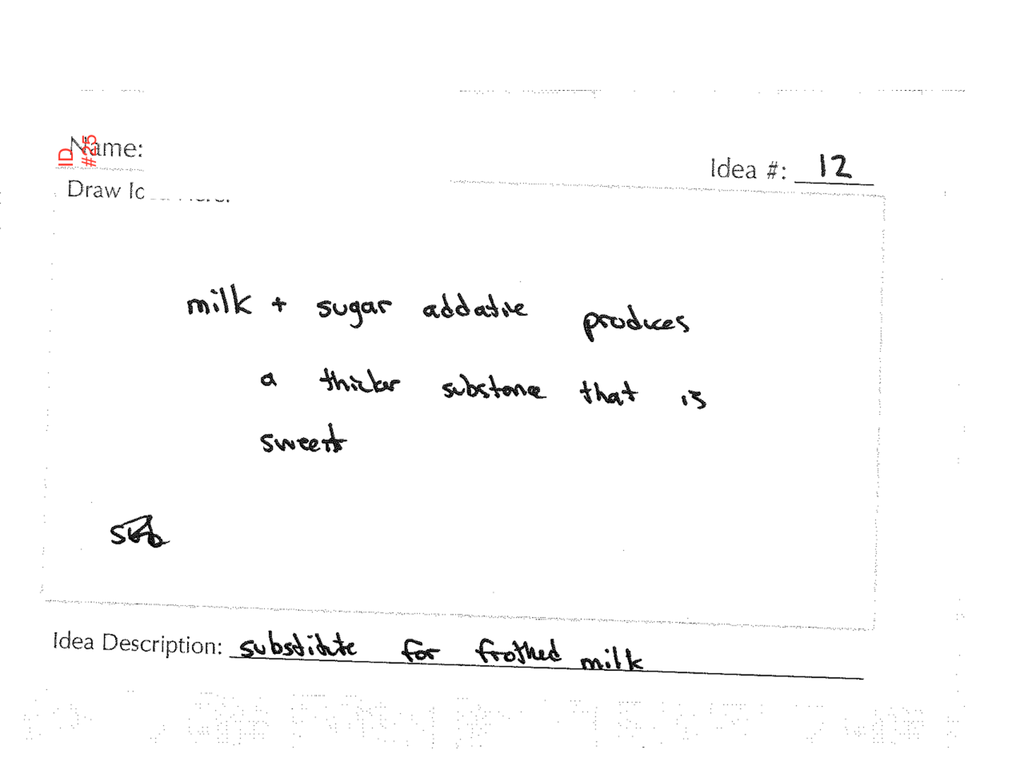 ID #25
Name:
Idea #: 12
milk + sugar addative produces
a thicker substance that is
sweet
Idea Description: substitute for frothed milk